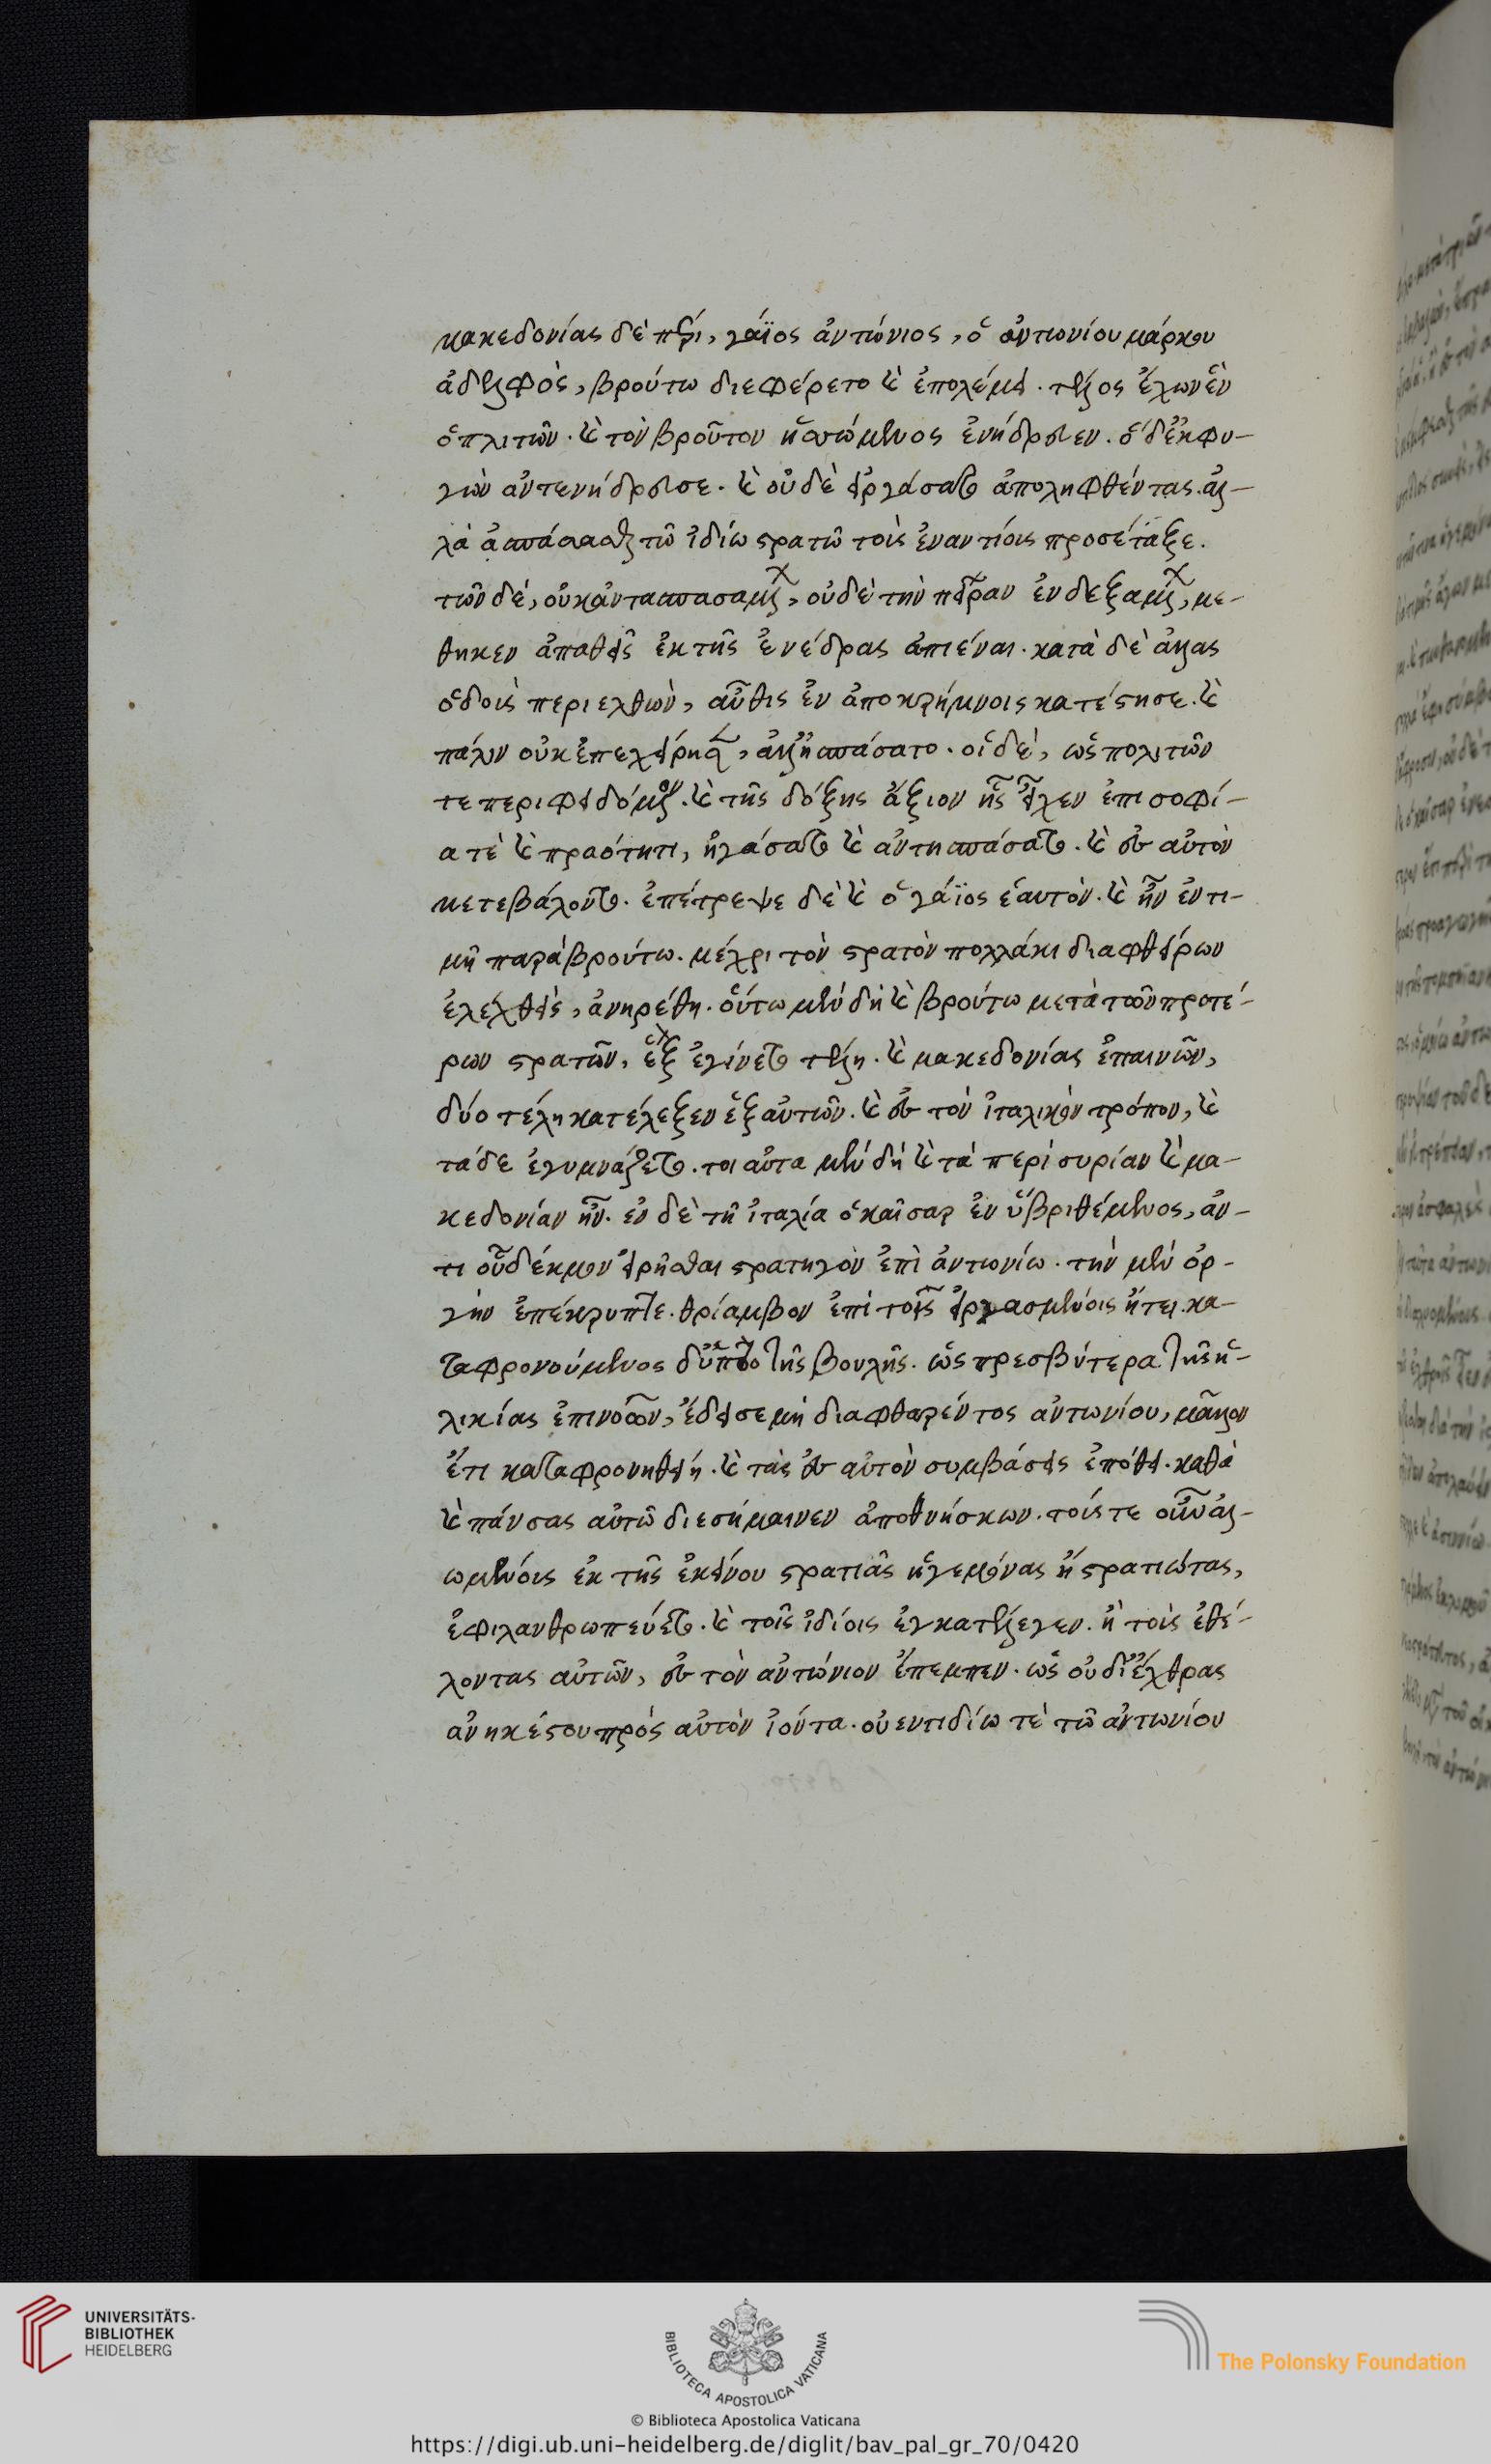 μακεδονίας δὲ πέρι, γάϊος ἀντώνιος, ὁ ἀντωνίου μάρκου
ἀδελφὸς, βρούτω διεφέρετο καὶ ἐπολέμει. τέλος ἔχων ἓν
ὁπλιτῶν. καὶ τὸν βροῦτον ἡσσώμενος ἐνήδρευεν. ὁ δ' ἐκφυ-
γὼν ἀντενήδρευσε. καὶ οὐδὲ εἰργάσατο ἀποληφθέντας. ἀλ-
λὰ ἀσπάσασθαι τῶ ἰδίω στρατῶ τοὺς ἐναντίους προσέταξε.
τῶν δὲ, οὐκ ἀντασπασαμένων, οὐδὲ τὴν πεῖραν ἐνδεξαμένων, με-
θηκεν ἀπαθεῖς ἐκ τῆς ἐνέδρας ἀπιέναι. κατὰ δὲ ἄλλας
ὁδοὺς περιελθὼν, αὖθις ἐν ἀποκρήμνοις κατέστησε. καὶ
πάλιν οὐκ ἐπεχείρησεν, ἀλλ' ἠσπάσατο. οἱ δὲ, ὡς πολιτῶν
τε περιφειδόμενον. καὶ τῆς δόξης ἄξιον ἧς εἶχεν ἐπὶ σοφί-
α τὲ καὶ πραότητι, ἠγάσαντο καὶ ἀντησπάσαντο. καὶ ἐς αὐτὸν
μετεβάλοντο. ἐπέτρεψε δὲ καὶ ὁ γάϊος ἑαυτὸν. καὶ ἦν ἐν τι-
μῆ παρὰ βρούτω. μέχρι τὸν στρατὸν πολλάκι διαφθείρων
ἐλεχθεὶς, ἀνηρέθη. οὕτω μὲν δὴ καὶ βρούτω μετὰ τῶν προτέ-
ρων στρατῶν, ἓξ ἐγένετο τέλη. καὶ μακεδονίας ἐπαινῶν,
δύο τέλη κατέλεξεν ἐξ αὐτῶν. καὶ ἐς τὸν ἰταλικὸν τρόπον, καὶ
τάδε ἐγυμνάζετο. τοιαῦτα μὲν δὴ καὶ τὰ περὶ συρίαν καὶ μα-
κεδονίαν ἦν. ἐν δὲ τῆ ἰταλία ὁ καῖσαρ ἐν ὕβρι θέμενος, ἀν-
τὶ οὗ δέκμον εἱρῆσθαι στρατηγὸν ἐπὶ ἀντωνίω. τὴν μὲν ὀρ-
γὴν ἐπέκρυπτε. θρίαμβον ἐπὶ τοῖς εἰργασμένοις ἤτει. κα-
ταφρονούμενος δ' ὑπὸ τῆς βουλῆς. ὡς πρεσβύτερα τῆς ἡ-
λικίας ἐπινοῶν, ἔδεισε μὴ διαφθαρέντος ἀντωνίου, μᾶλλον
ἔτι καταφρονηθείη. καὶ τὰς ἐς αὐτὸν συμβάσεις ἐπόθει. καθὰ
καὶ πάνσας αὐτῶ διεσήμαινεν ἀποθνήσκων. τούς τε οὖν ἁλ-
ωμένους ἐκ τῆς ἐκείνου στρατιᾶς ἡγεμόνας ἢ στρατιώτας,
ἐφιλανθρωπεύετο. καὶ τοῖς ἰδίοις ἐγκατέλεγεν. ἢ τοὺς ἐθέ-
λοντας αὐτῶν, ἐς τὸν ἀντώνιον ἔπεμπεν. ὡς οὐ δι' ἔχθρας
ἀνηκέστου πρὸς αὐτὸν ἰόντα. οὐεντιδίω τὲ τῶ ἀντωνίου
UNIVERSITÄTS-
BIBLIOTHEK
HEIDELBERG
BIBLIOTECA APOSTOLICA VATICANA
The Polonsky Foundation
© Biblioteca Apostolica Vaticana
https://digi.ub.uni-heidelberg.de/diglit/bav_pal_gr_70/0420